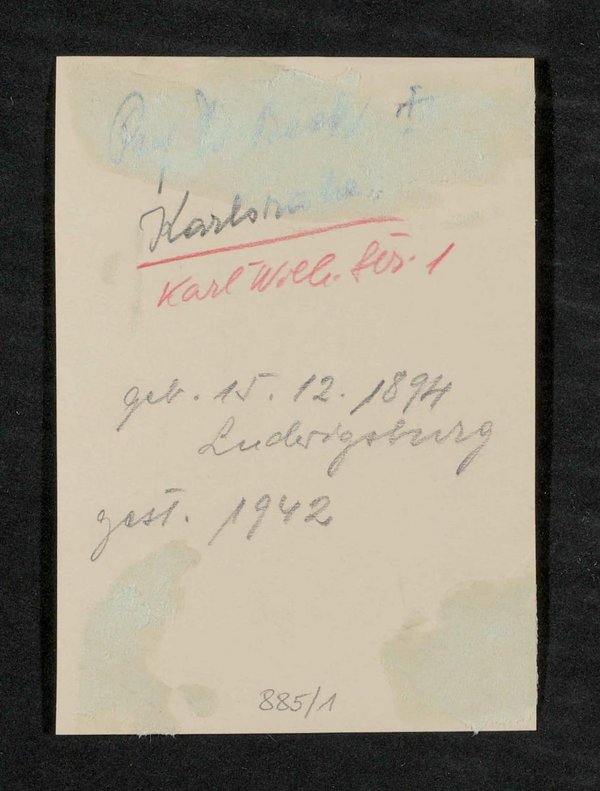 †
Karlsruhe
Karl Wilh. Str. 1
geb. 15. 12. 1894
Ludwigsburg
gest. 1942
885/1